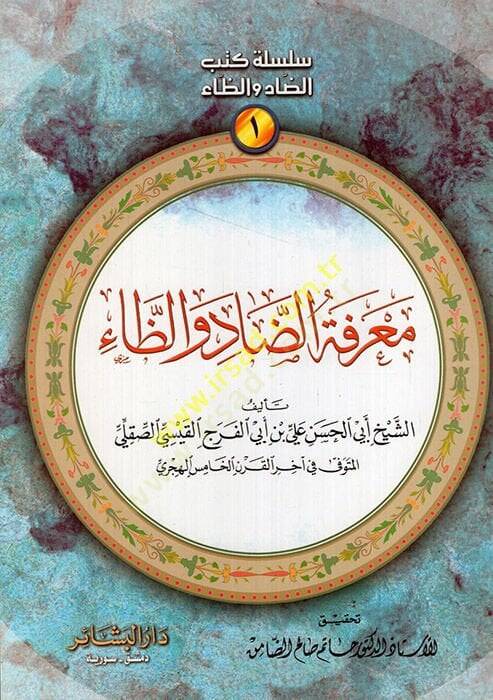 سلسلة كتب
الضاد والظاء
١
معرفة الضاد والظاء
تأليف
الشيخ أبي الحسن علي بن أبي الفرج القيسي الصقلي
المتوفى في آخر القرن الخامس الهجري
تحقيق
الأستاذ الدكتور حاتم صالح الضامن
دار البشائر
دمشق - سورية